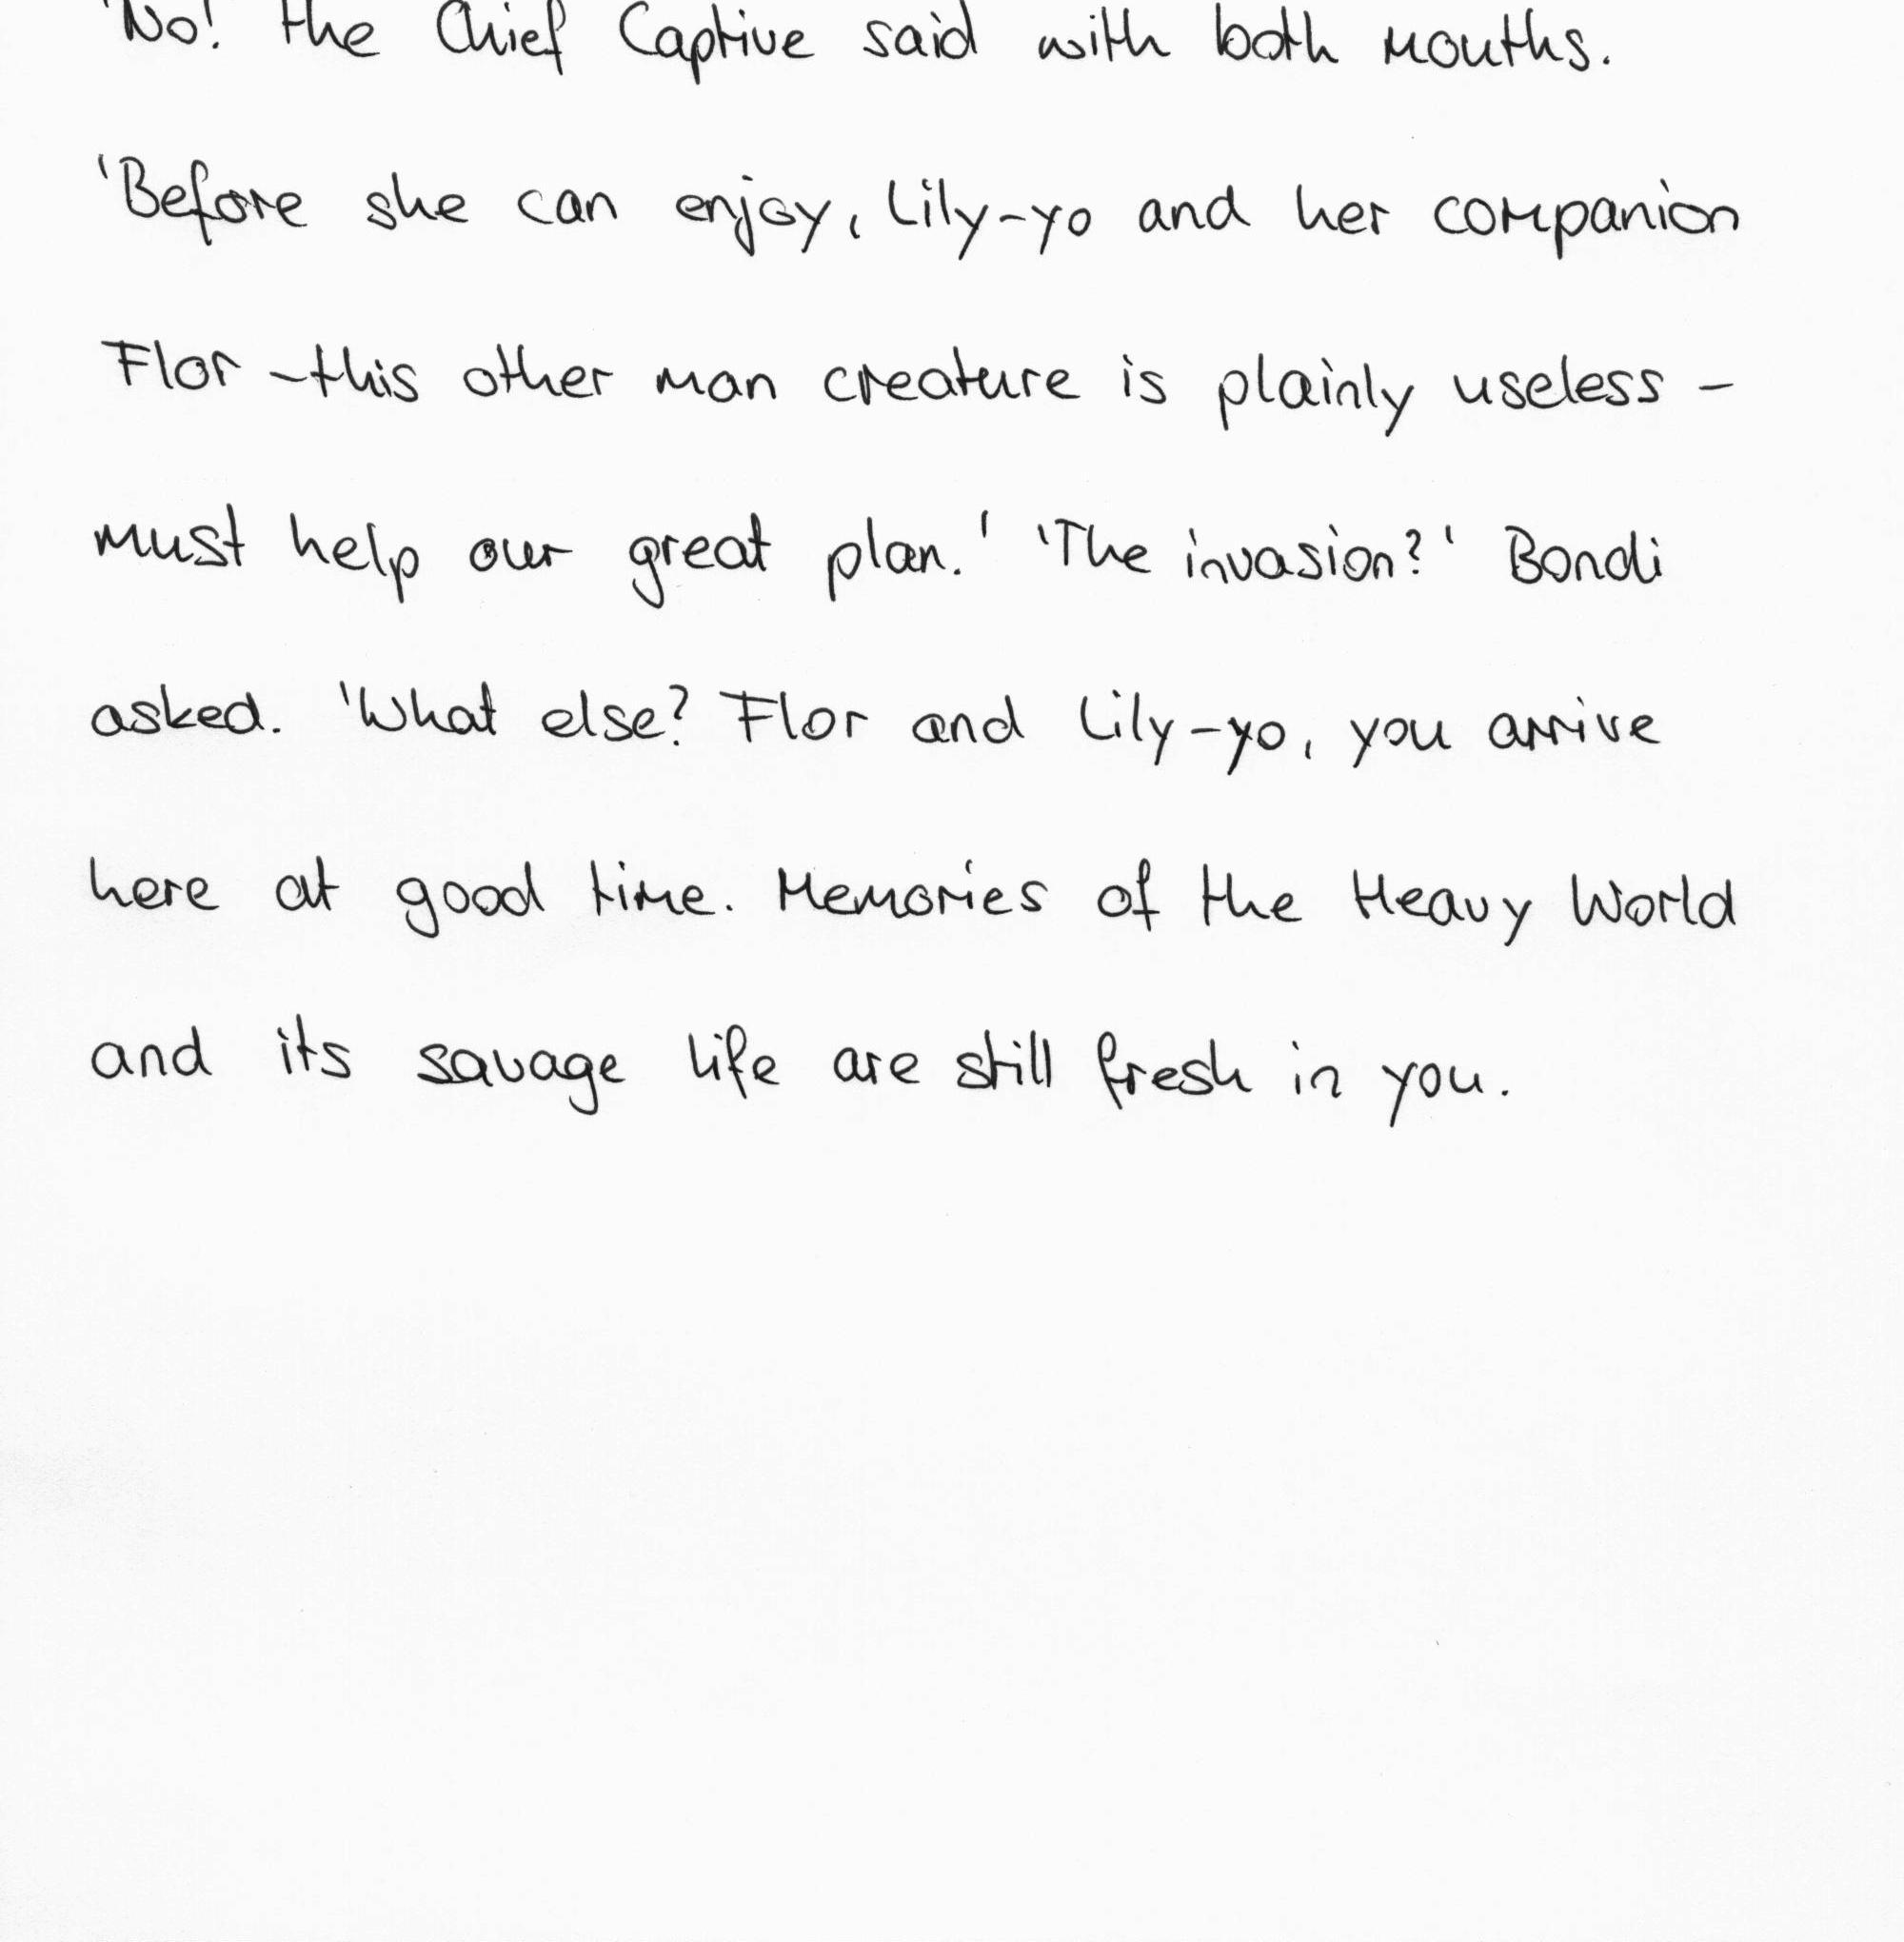 'No! the Chief Captive said with both mouths.
'Before she can enjoy, Lily-yo and her companion
Flor -this other man creature is plainly useless -
must help our great plan.' 'The invasion?' Bondi
asked. 'What else? Flor and Lily-yo, you arrive
here at good time. Memories of the Heavy World
and its savage life are still fresh in you.